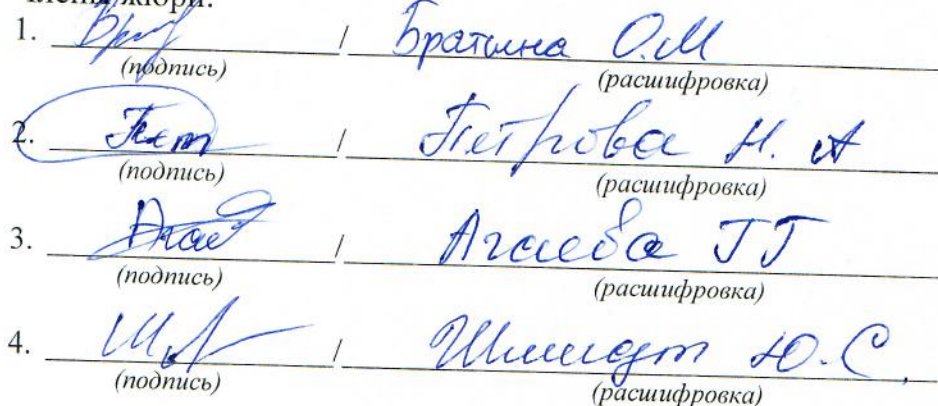 Члены жюри:
1. / Братына О.М
(подпись) (расшифровка)
2. Пет / Петрова Н. А
(подпись) (расшифровка)
3. Агае / Агаева Г Г
(подпись) (расшифровка)
4. / Шмидт Ю.С.
(подпись) (расшифровка)